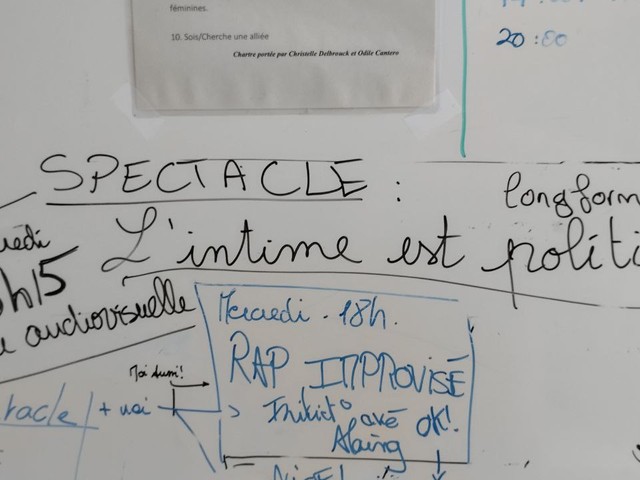 féminines.
10. Sois/Cherche une alliée
Chartre portée par Christelle Delbrouck et Odile Cantero
20:00
SPECTACLE :
longform
L'intime est politi
h15
audiovisuelle
Mercredi - 18h.
RAP IMPROVISÉ
Moi aussi!
racle + moi
OK!